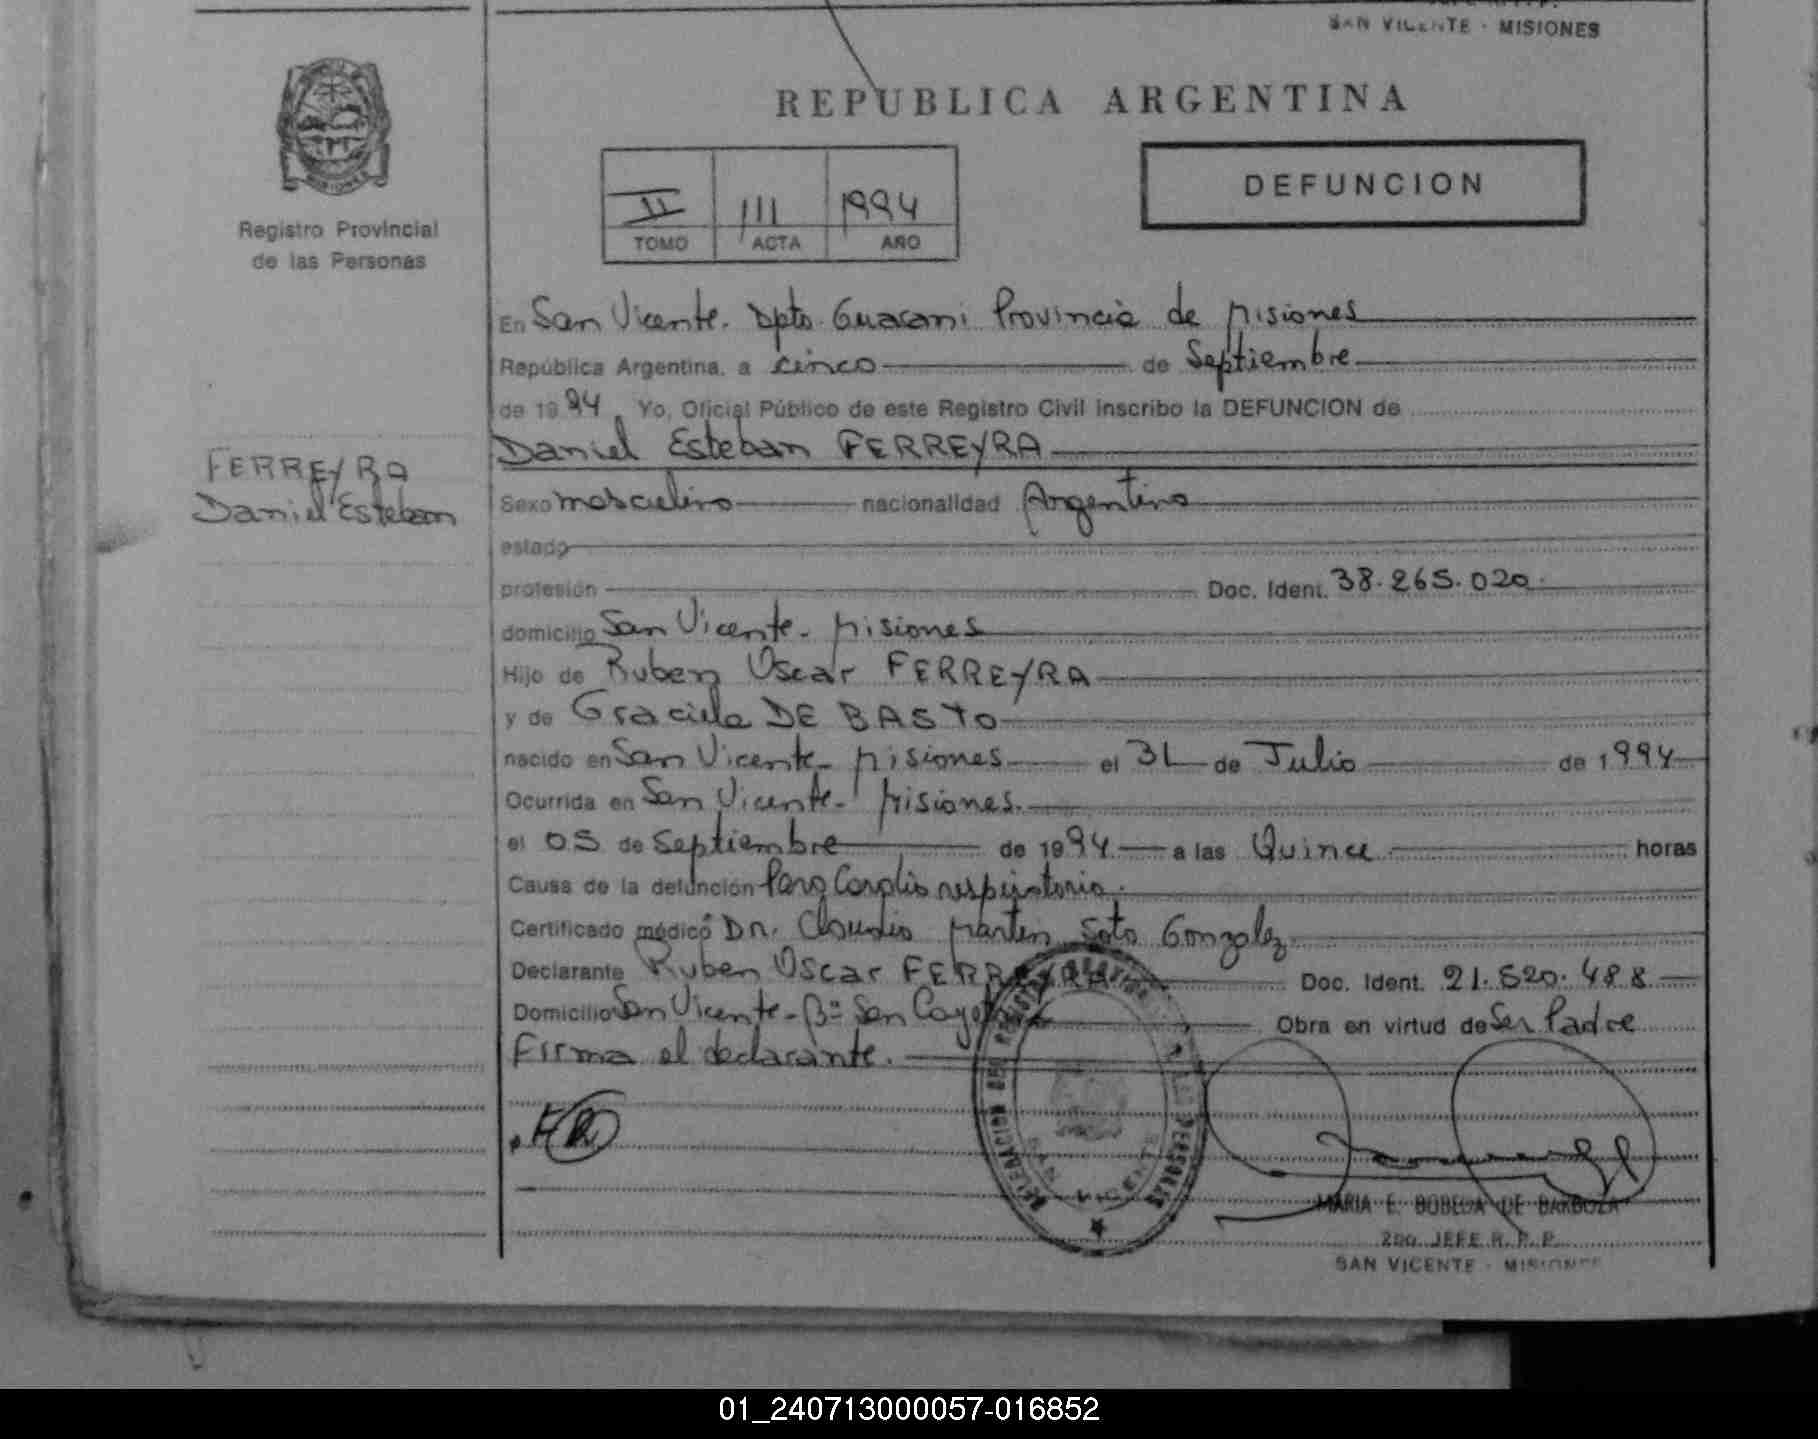 SAN VICENTE - MISIONES
REPUBLICA ARGENTINA
DEFUNCION
II III 1994
TOMO ACTA AÑO
MISIONES
Registro Provincial
de las Personas
En San Vicente. Dpto. Guarani Provincia de Misiones
República Argentina, a cinco de Septiembre
de 1994, Yo, Oficial Público de este Registro Civil inscribo la DEFUNCION de
Daniel Esteban FERREYRA
FERREYRA
Daniel Esteban
Sexo masculino nacionalidad Argentino
estado
profesión Doc. Ident. 38.265.020.
domicilio San Vicente - Misiones
Hijo de Ruben Oscar FERREYRA
y de Graciela DE BASTO
nacido en San Vicente - Misiones el 31 de Julio de 1994
Ocurrida en San Vicente - Misiones.
el 05 de Septiembre de 1994 a las Quince horas
Causa de la defunción Paro Cardio respiratorio.
Certificado médico Dr. Claudio Martin Soto Gonzalez
Declarante Ruben Oscar FERREYRA Doc. Ident. 21.520.488
Domicilio San Vicente - Bº San Cayetano Obra en virtud de Ser Padre
Firma el declarante.
DELEGACION DEL REGISTRO DE LAS PERSONAS
SAN VICENTE
MARIA E. BOBEDA DE BARBOZA
2do. JEFE R. P. P.
SAN VICENTE - MISIONES
01_240713000057-016852